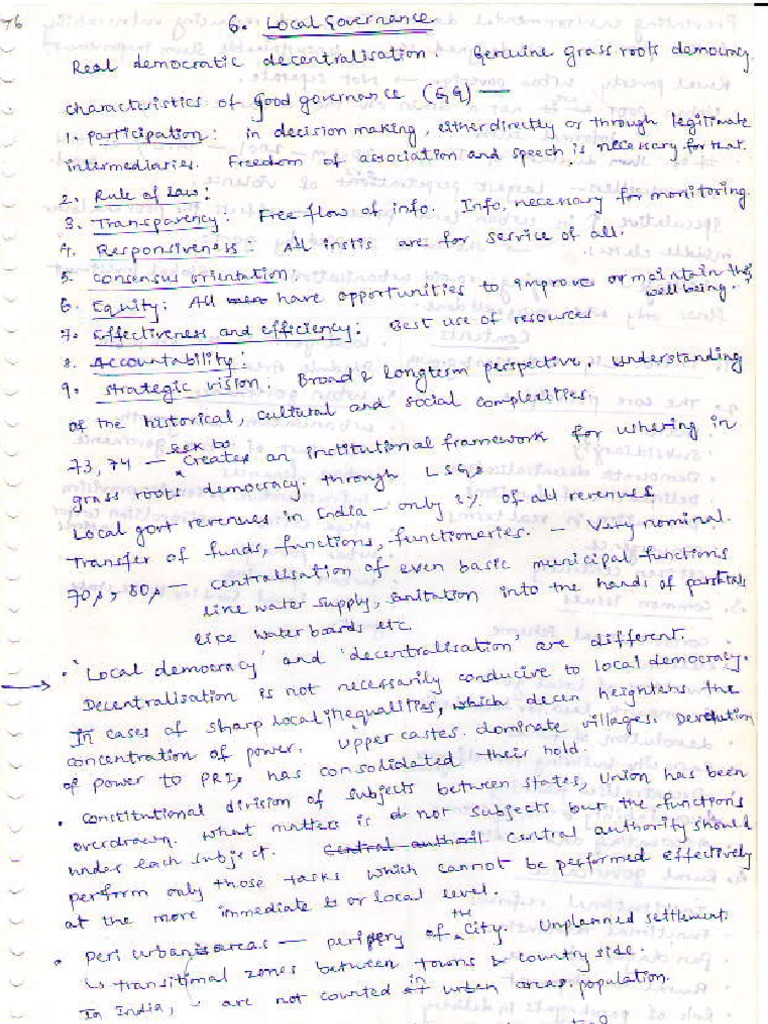 76
6. Local Governance
Real democratic decentralisation. Genuine grass roots democracy.
characteristics of Good governance (GG) —
1. Participation: in decision making, either directly or through legitimate
intermediaries. Freedom of association and speech is necessary for that.
2. Rule of law:
3. Transparency: Free flow of info. Info, necessary for monitoring.
4. Responsiveness: All instis are for service of all.
5. Consensus orientation.
6. Equity: All have opportunities to improve or maintain their
well being.
7. Effectiveness and efficiency: Best use of resources
8. Accountability:
9. Strategic vision. Broad & longterm perspective. Understanding
of the historical, cultural and social complexities.
seek to
73, 74 — Create an institutional framework for ushering in
grass roots democracy. through LSGs
Local govt revenues in India — only 2% of all revenues
Transfer of funds, functions, functioneries. — Very nominal.
70s, 80s — centralisation of even basic municipal functions
like water supply, sanitation into the hands of parastatals
like water boards etc
• 'Local democracy' and 'decentralisation' are different.
Decentralisation is not necessarily conducive to local democracy.
In cases of sharp local inequalities, which decen heightens the
concentration of power. Upper castes dominate villages. Devolution
of power to PRIs has consolidated their hold.
• Constitutional division of subjects between states, Union has been
overdrawn. What matters is not subjects but the functions
under each subject. Central authail Central authority should
perform only those tasks which cannot be performed effectively
at the more immediate or local level.
• Peri urban areas — peripery of the City. Unplanned settlement.
↳ transitional zones between towns & country side.
In India, are not counted in urban areas population.